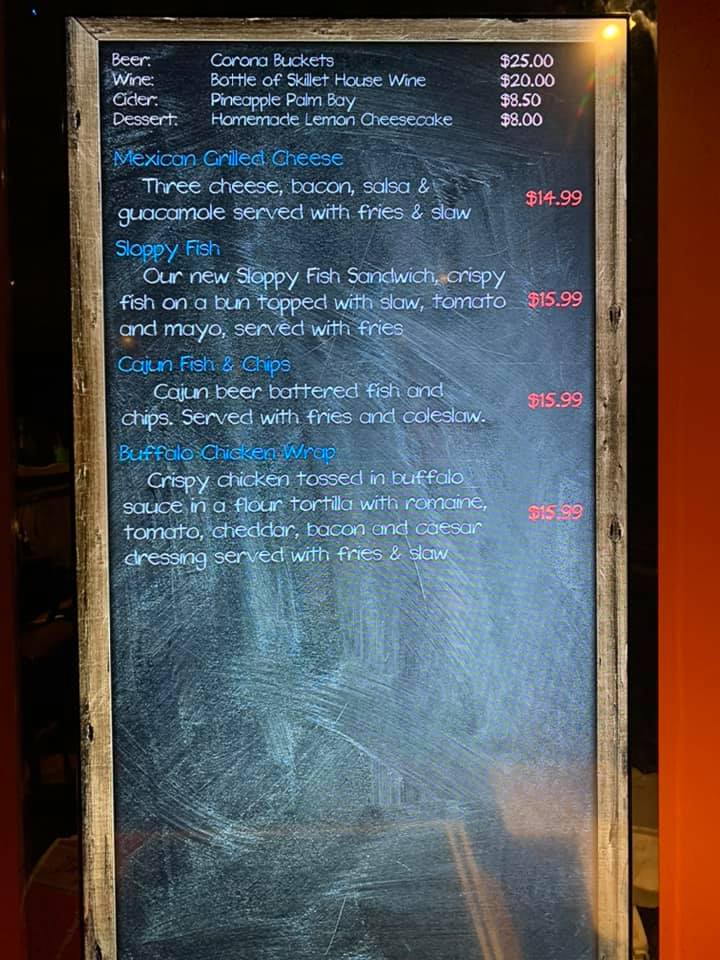 Beer: Corona Buckets $25.00
Wine: Bottle of Skillet House Wine $20.00
Cider: Pineapple Palm Bay $8.50
Dessert: Homemade Lemon Cheesecake $8.00
Mexican Grilled Cheese
Three cheese, bacon, salsa &
guacamole served with fries & slaw
$14.99
Sloppy Fish
Our new Sloppy Fish Sandwich, crispy
fish on a bun topped with slaw, tomato
and mayo, served with fries
$15.99
Cajun Fish & Chips
Cajun beer battered fish and
chips. Served with fries and coleslaw.
$15.99
Buffalo Chicken Wrap
Crispy chicken tossed in buffalo
sauce in a flour tortilla with romaine,
tomato, cheddar, bacon and caesar
dressing served with fries & slaw
$15.99